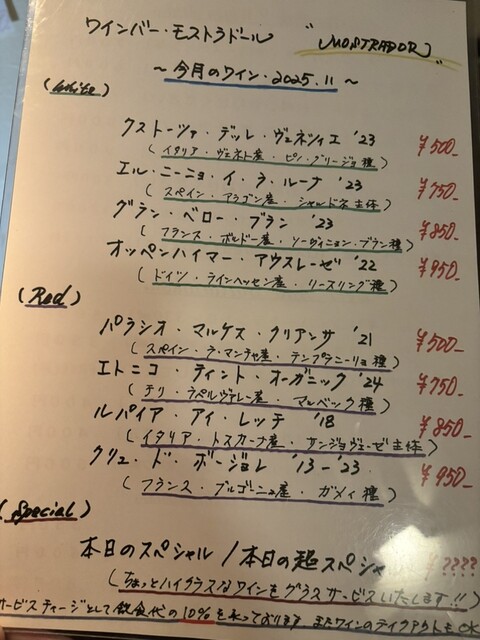 ワインバー・モストラドール "MOSTRADOR"
～今月のワイン・2025.11～
(White)
クストーツァ・デッレ・ヴェネツィエ '23 ¥500-
(イタリア・ヴェネト産・ピノ・グリージョ種)
エル・ニーニョ・イ・ラ・ルーナ '23 ¥750-
(スペイン・アラゴン産・シャルドネ主体)
グラン・ベロー・ブラン '23 ¥850-
(フランス・ボルドー産・ソーヴィニョン・ブラン種)
オッペンハイマー・アウスレーゼ '22 ¥950-
(ドイツ・ラインヘッセン産・リースリング種)
(Red)
パラシオ・マルケス・クリアンサ '21 ¥500-
(スペイン・ラ・マンチャ産・テンプラニーリョ種)
エトニコ・ティント・オーガニック '24 ¥750-
(チリ・ラペルヴァレー産・マルベック種)
ルパイア・アイ・レッチ '18 ¥850-
(イタリア・トスカーナ産・サンジョヴェーゼ主体)
クリュ・ド・ボージョレ '13-'23 ¥950-
(フランス・ブルゴーニュ産・ガメイ種)
(Special)
本日のスペシャル / 本日の超スペシャル ¥????
(ちょっとハイクラスなワインをグラスサービスいたします!!)
サービスチャージとして飲食代の10%を承っております またワインのテイクアウトもOK